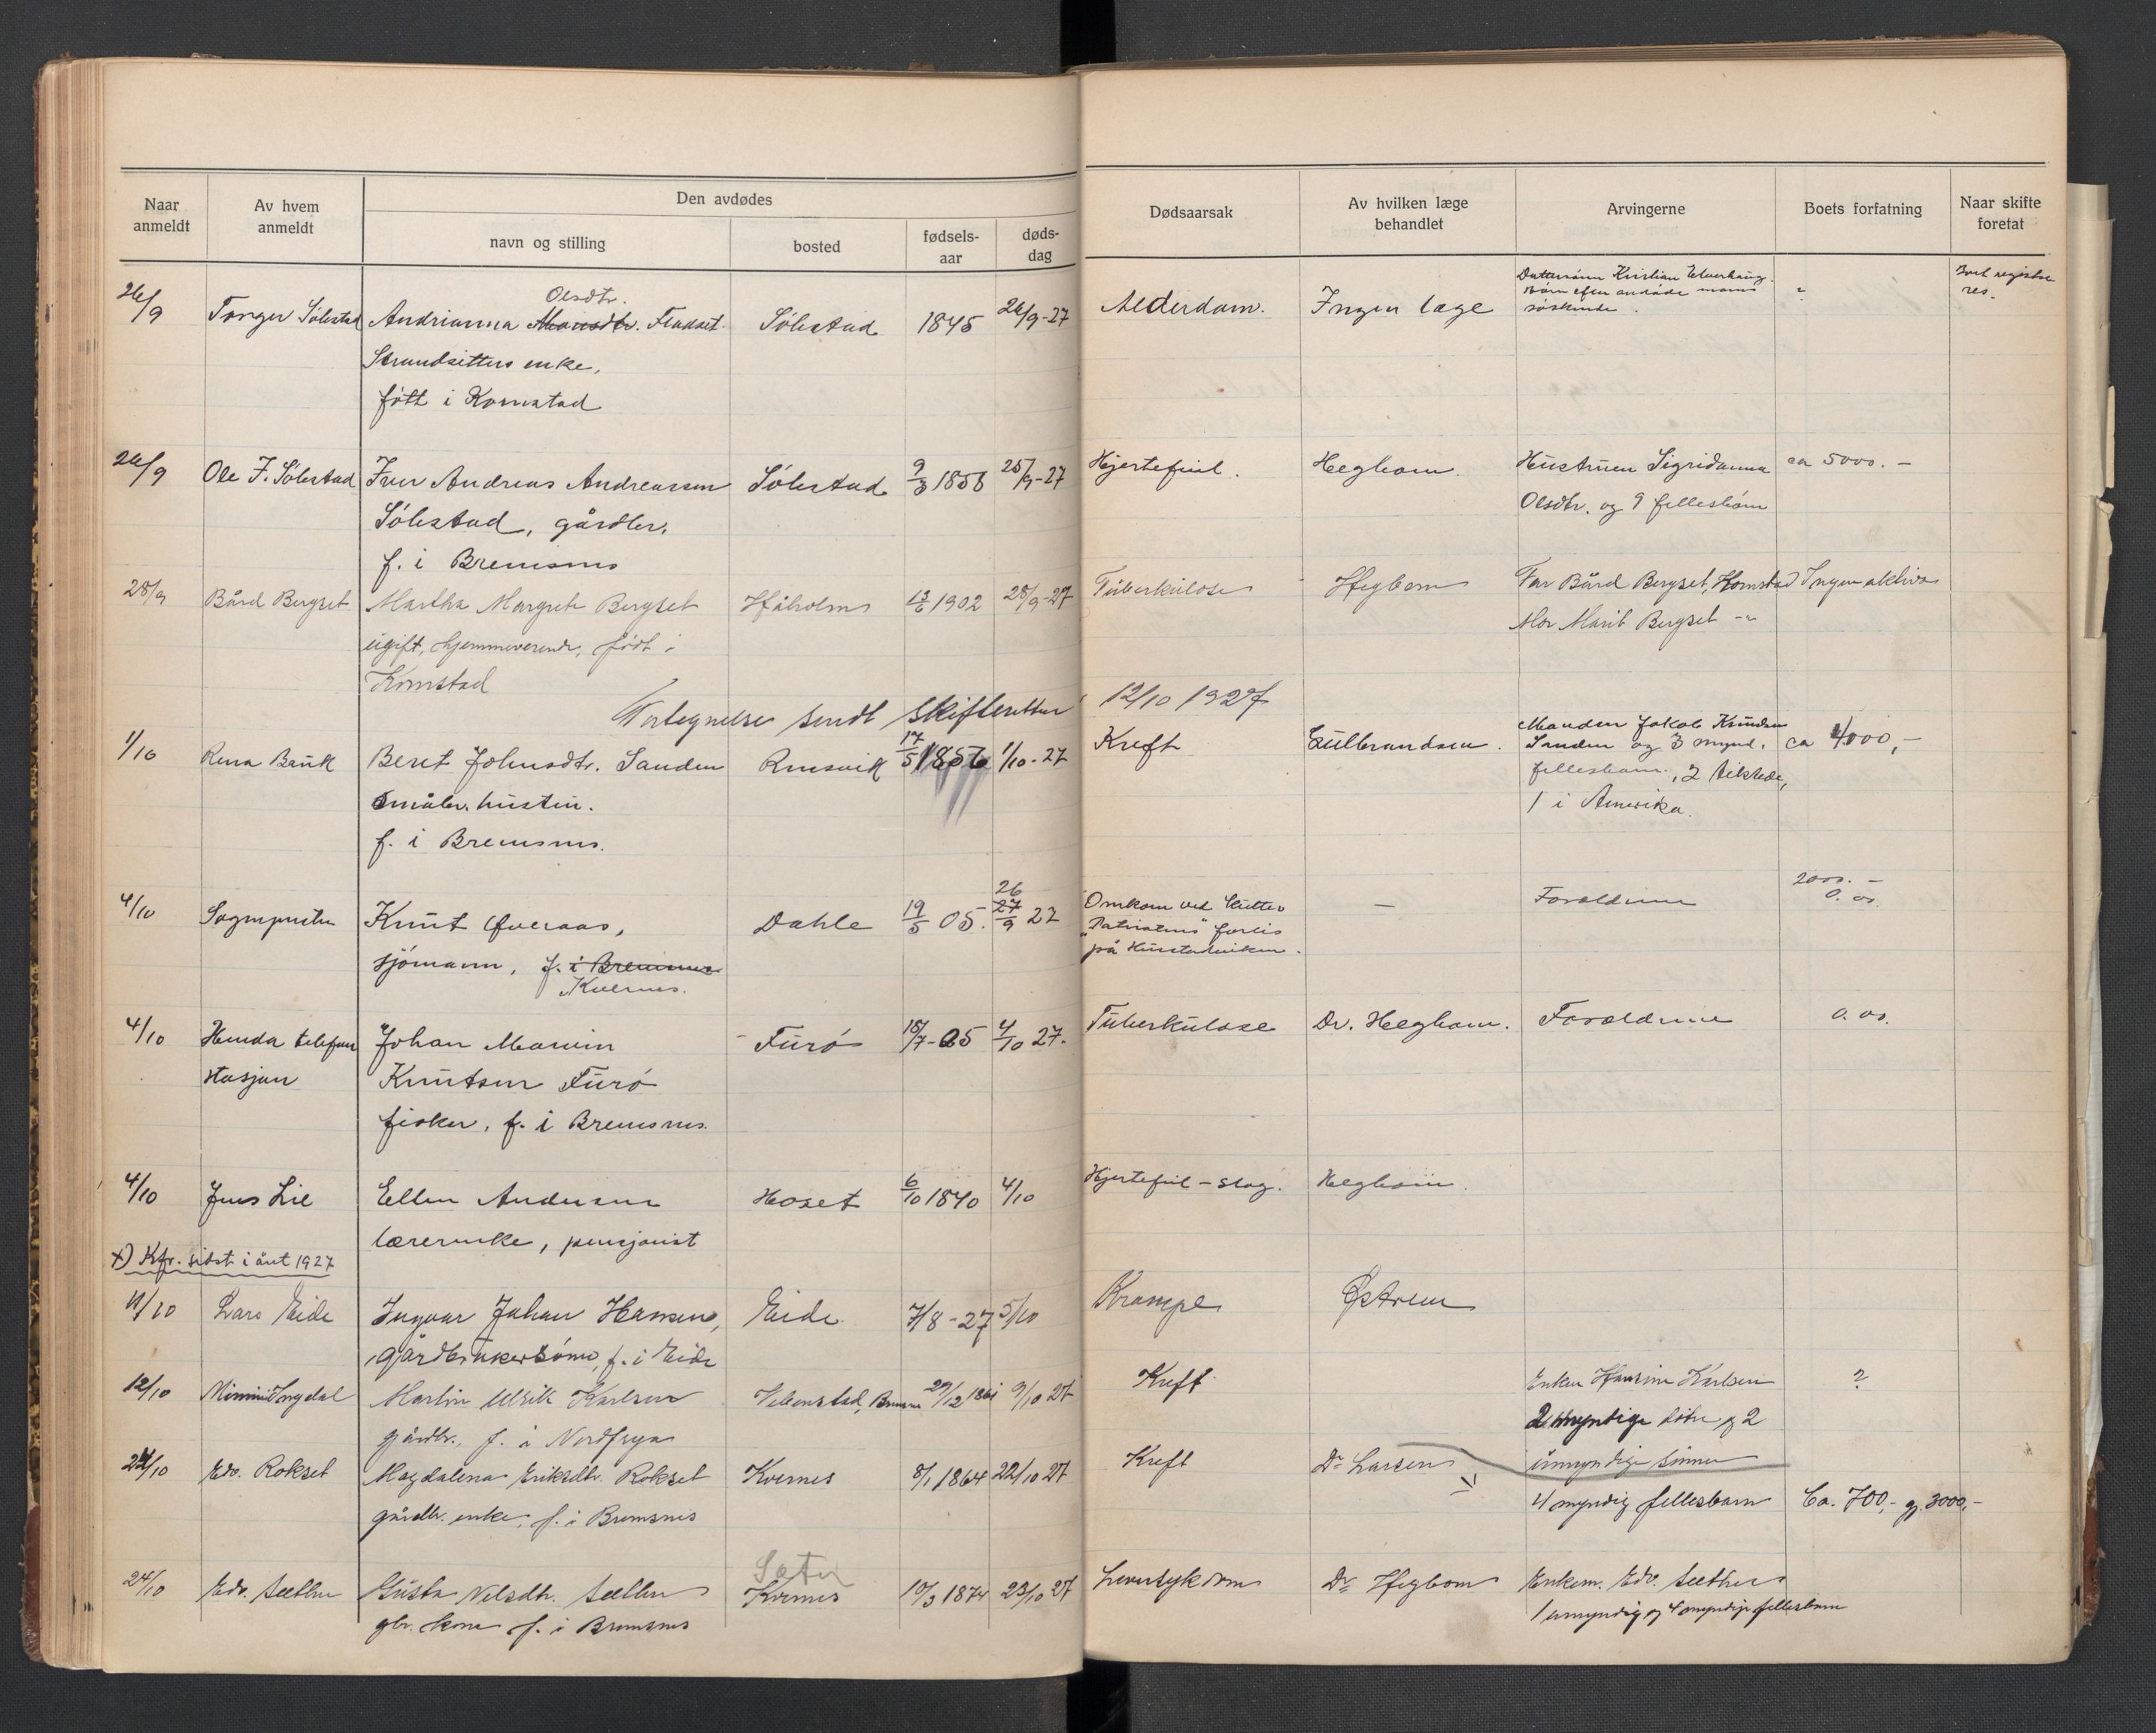 Naar anmeldt
Av hvem anmeldt
Den avdødes
navn og stilling
bosted
fødsels-aar
døds-dag
Dødsaarsak
Av hvilken læge behandlet
Arvingerne
Boets forfatning
Naar skifte foretat
26/9 Torger Sølestad Andrianna Monsdtr. Olsdtr. Fladset Sølestad 1845 26/9-27 Alderdom. Ingen læge
Strandsitters enke,
født i Kornstad
søskende.
26/9 Ole J. Sølestad Iver Andreas Andreassen Sølestad 9/3 1858 25/9-27 Hjertefeil. Hegbom. Hustruen Sigridanna ca 5000.-
Sølestad, gårdbr. Olsdtr. og 9 fellesbørn
f. i Bremsnes
28/9 Bård Bergset Martha Margrete Bergset Håholm 1902 28/9-27 Tuberkulose Hegbom Far Bård Bergset, Kornstad Ingen aktiva
ugift, hjemmeverende, født i Mor Marit Bergset -"-
Kornstad
Fortegnelse sendt skifteretten 12/10 1927
1/10 Beret Johnsdtr. Sanden 17/5 1856 1/10-27 Kreft Gulbrandsen. Manden Jakob Knudsen
Sanden og 3 mynd. ca 4000,-
småbr. hustru. fellesbarn, 2 tilstede,
f. i Bremsnes. 1 i Amerika.
4/10 Sognepresten Knut Øveraas, Dahle 19/5 05. 26 27/9 27 Omkom ved kutter — Foreldrene 2000.- 0.00.
sjømann, f. i Bremsnes "Patriotens" forlis
Kvernes. på Hustadviken.
4/10 Henda telefon Johan Marvin Furø 18/7-05 4/10 27. Tuberkulose Dr. Hegbom. Foreldrene 0.00.
stasjon Knutsen Furø
fisker, f. i Bremsnes.
4/10 Jens Lie Ellen Andersen Hoset 6/10 1840 4/10 Hjertefeil - slag. Hegbom.
lærerenke, pensjonist
x) Kfr. sidst i året 1927
11/10 Lars Eide Ingvar Johan Hansen, Eide 7/8-27 5/10 Krampe Østrem
gårdbrukersønn, f. i Eide
12/10 Martin Ulrik Karlsen 29/12 1861 9/10 27 Kreft Enken Hansine Karlsen ?
gårdbr., f. i 2 myndige døtre og 2
umyndige sønner
24/10 Edv. Rokset Magdalena Eriksdtr. Rokset Kvernes 8/1 1864 22/10 27 Kreft Dr Larsen
gårdbr. enke, f. i Bremsnes 4 myndig fellesbarn Ca. 700,- gj. 3000,-
24/10 Edv. Sæther Gusta Nilsdtr. Sæther Sæter Kvernes 10/3 1874 23/10 27 Leversykdom Dr Hegbom Enkem. Edv. Sæther
gbr. kone f. i Bremsnes 1 umyndig og 4 myndige fellesbarn